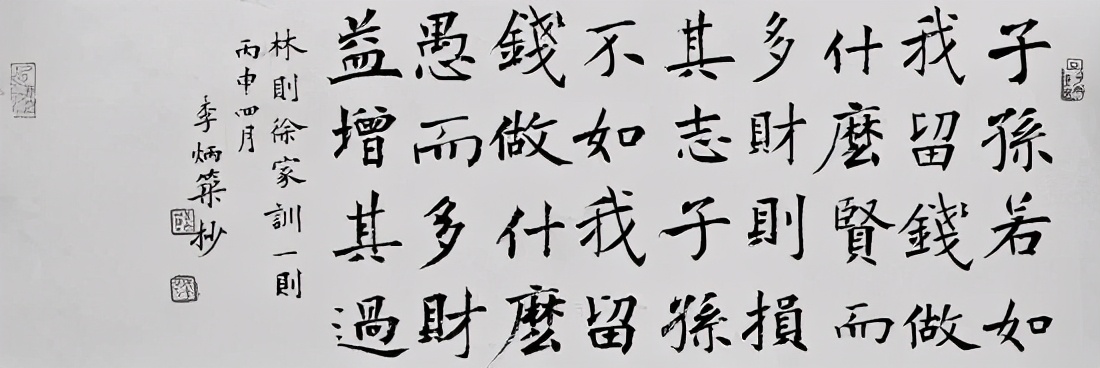 子孫若如
我留錢做
什麼賢而
多財則損
其志子孫
不如我留
錢做什麼
愚而多財
益增其過
林則徐家訓一則
丙申四月
季炳築抄